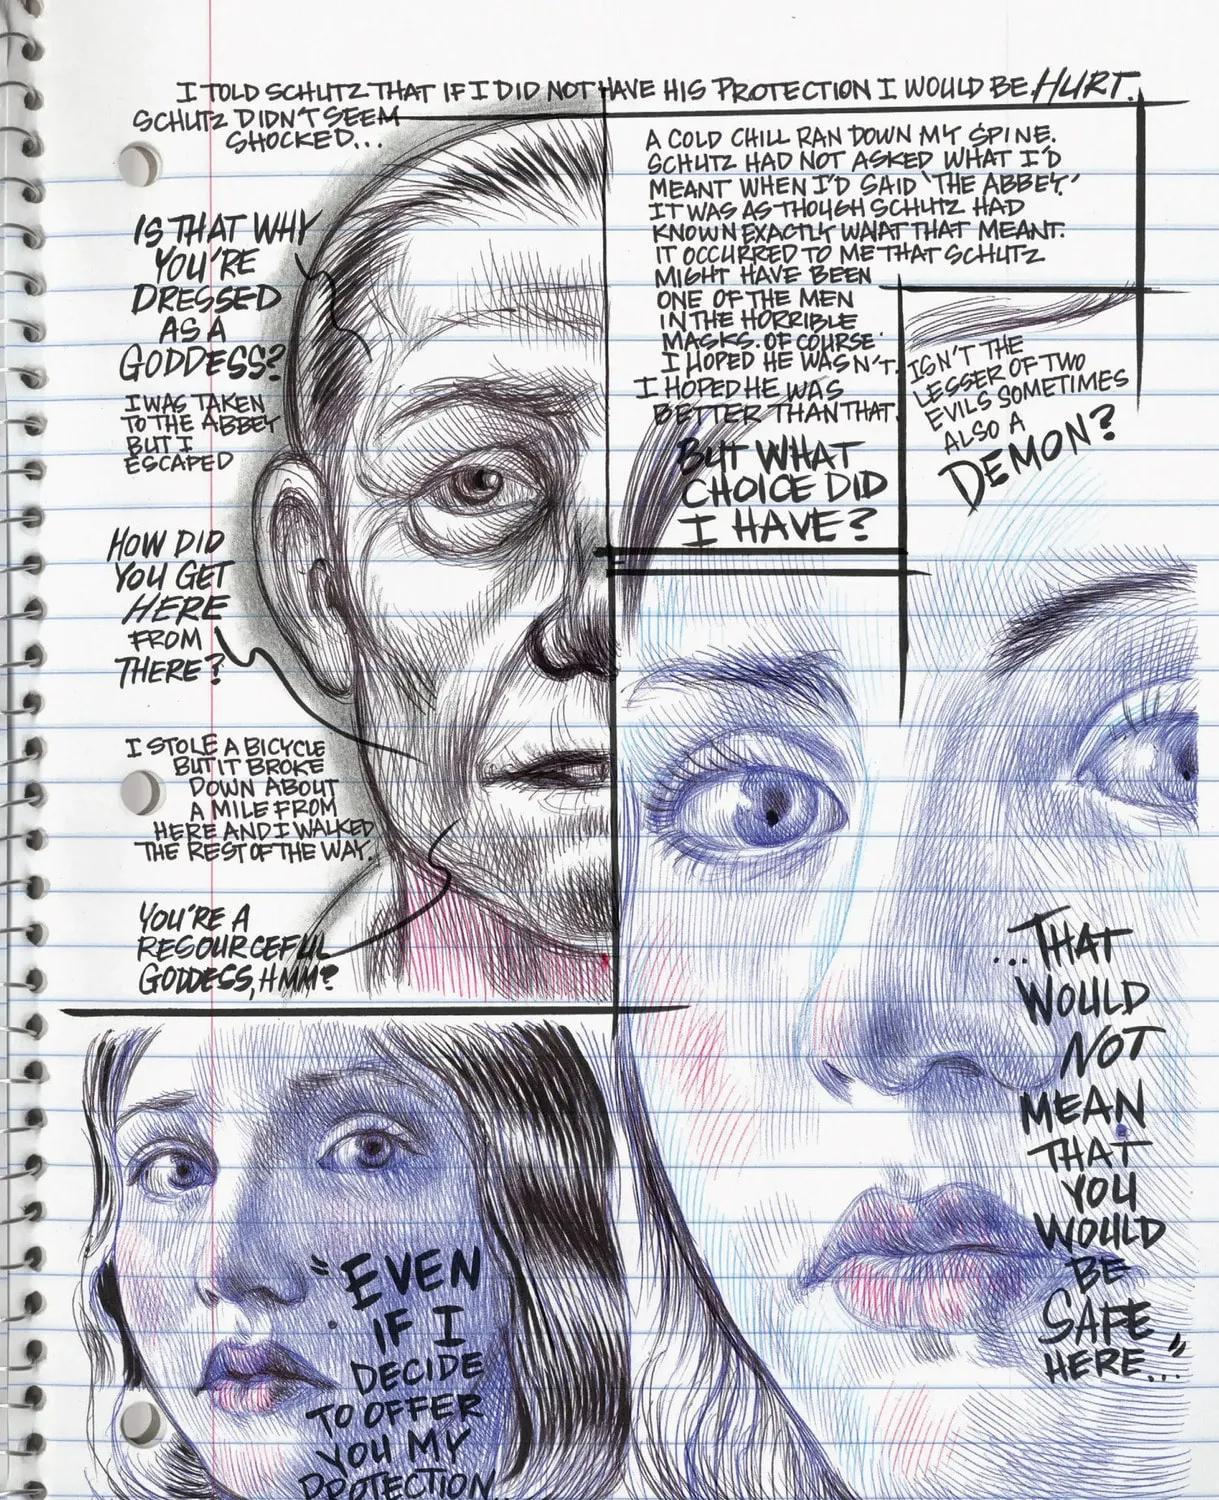 I TOLD SCHUTZ THAT IF I DID NOT HAVE HIS PROTECTION I WOULD BE HURT.
SCHUTZ DIDN'T SEEM
SHOCKED...
IS THAT WHY
YOU'RE
DRESSED
AS A
GODDESS?
I WAS TAKEN
TO THE ABBEY
BUT I
ESCAPED
HOW DID
YOU GET
HERE
FROM
THERE?
I STOLE A BICYCLE
BUT IT BROKE
DOWN ABOUT
A MILE FROM
HERE AND I WALKED
THE REST OF THE WAY.
YOU'RE A
RESOURCEFUL
GODDESS, HMM?
A COLD CHILL RAN DOWN MY SPINE.
SCHUTZ HAD NOT ASKED WHAT I'D
MEANT WHEN I'D SAID 'THE ABBEY.'
IT WAS AS THOUGH SCHUTZ HAD
KNOWN EXACTLY WHAT THAT MEANT.
IT OCCURRED TO ME THAT SCHUTZ
MIGHT HAVE BEEN
ONE OF THE MEN
IN THE HORRIBLE
MASKS. OF COURSE
I HOPED HE WASN'T.
I HOPED HE WAS
BETTER THAN THAT.
BUT WHAT
CHOICE DID
I HAVE?
ISN'T THE
LESSER OF TWO
EVILS SOMETIMES
ALSO A
DEMON?
"EVEN
IF I
DECIDE
TO OFFER
YOU MY
PROTECTION...
...THAT
WOULD
NOT
MEAN
THAT
YOU
WOULD
BE
SAFE
HERE..."